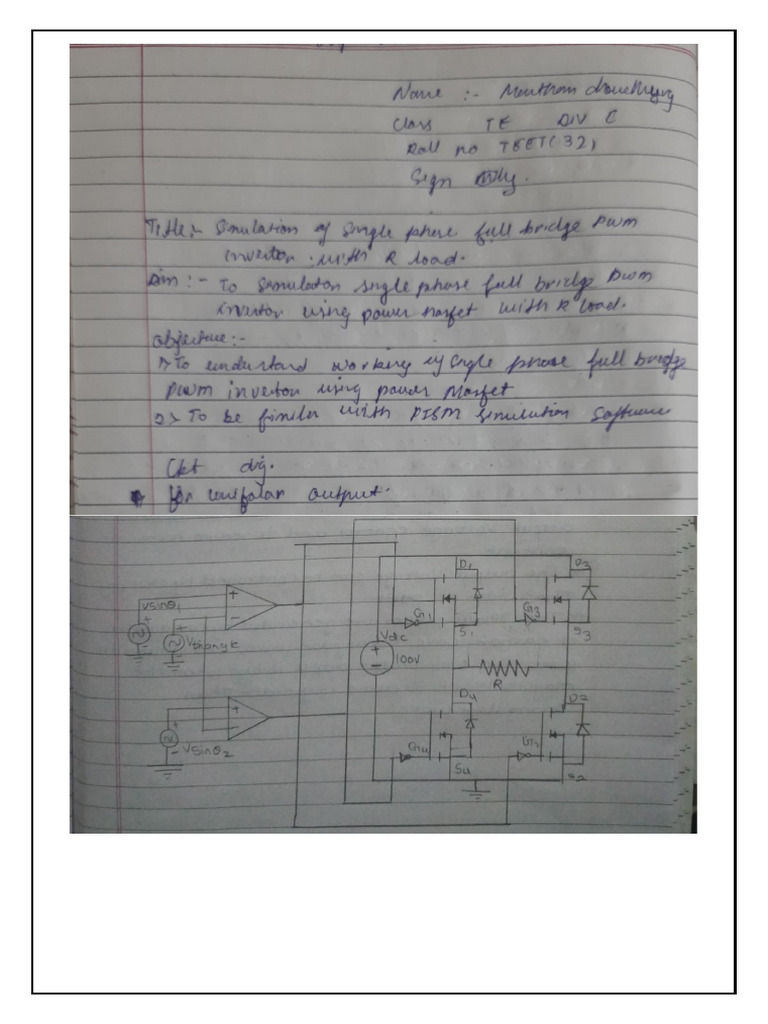 Name :- Manthan choudhary
Class TE DIV E
Roll no TBET(32)
Sign
Title:- Simulation of single phase full bridge PWM
invertor with R load.
Aim:- To simulation single phase full bridge PWM
invertor using power mosfet with R load.
Objective:-
1> To understand working of single phase full bridge
PWM invertor using power Mosfet
2> To be fimiler with PISM simulation Software
Ckt dig.
for output.
D1
D3
Vsinθ1
+
-
G1
G3
S1
S3
Vtriangle
Vdc
100V
R
D4
D2
Vsinθ2
+
-
G4
G2
S4
S2